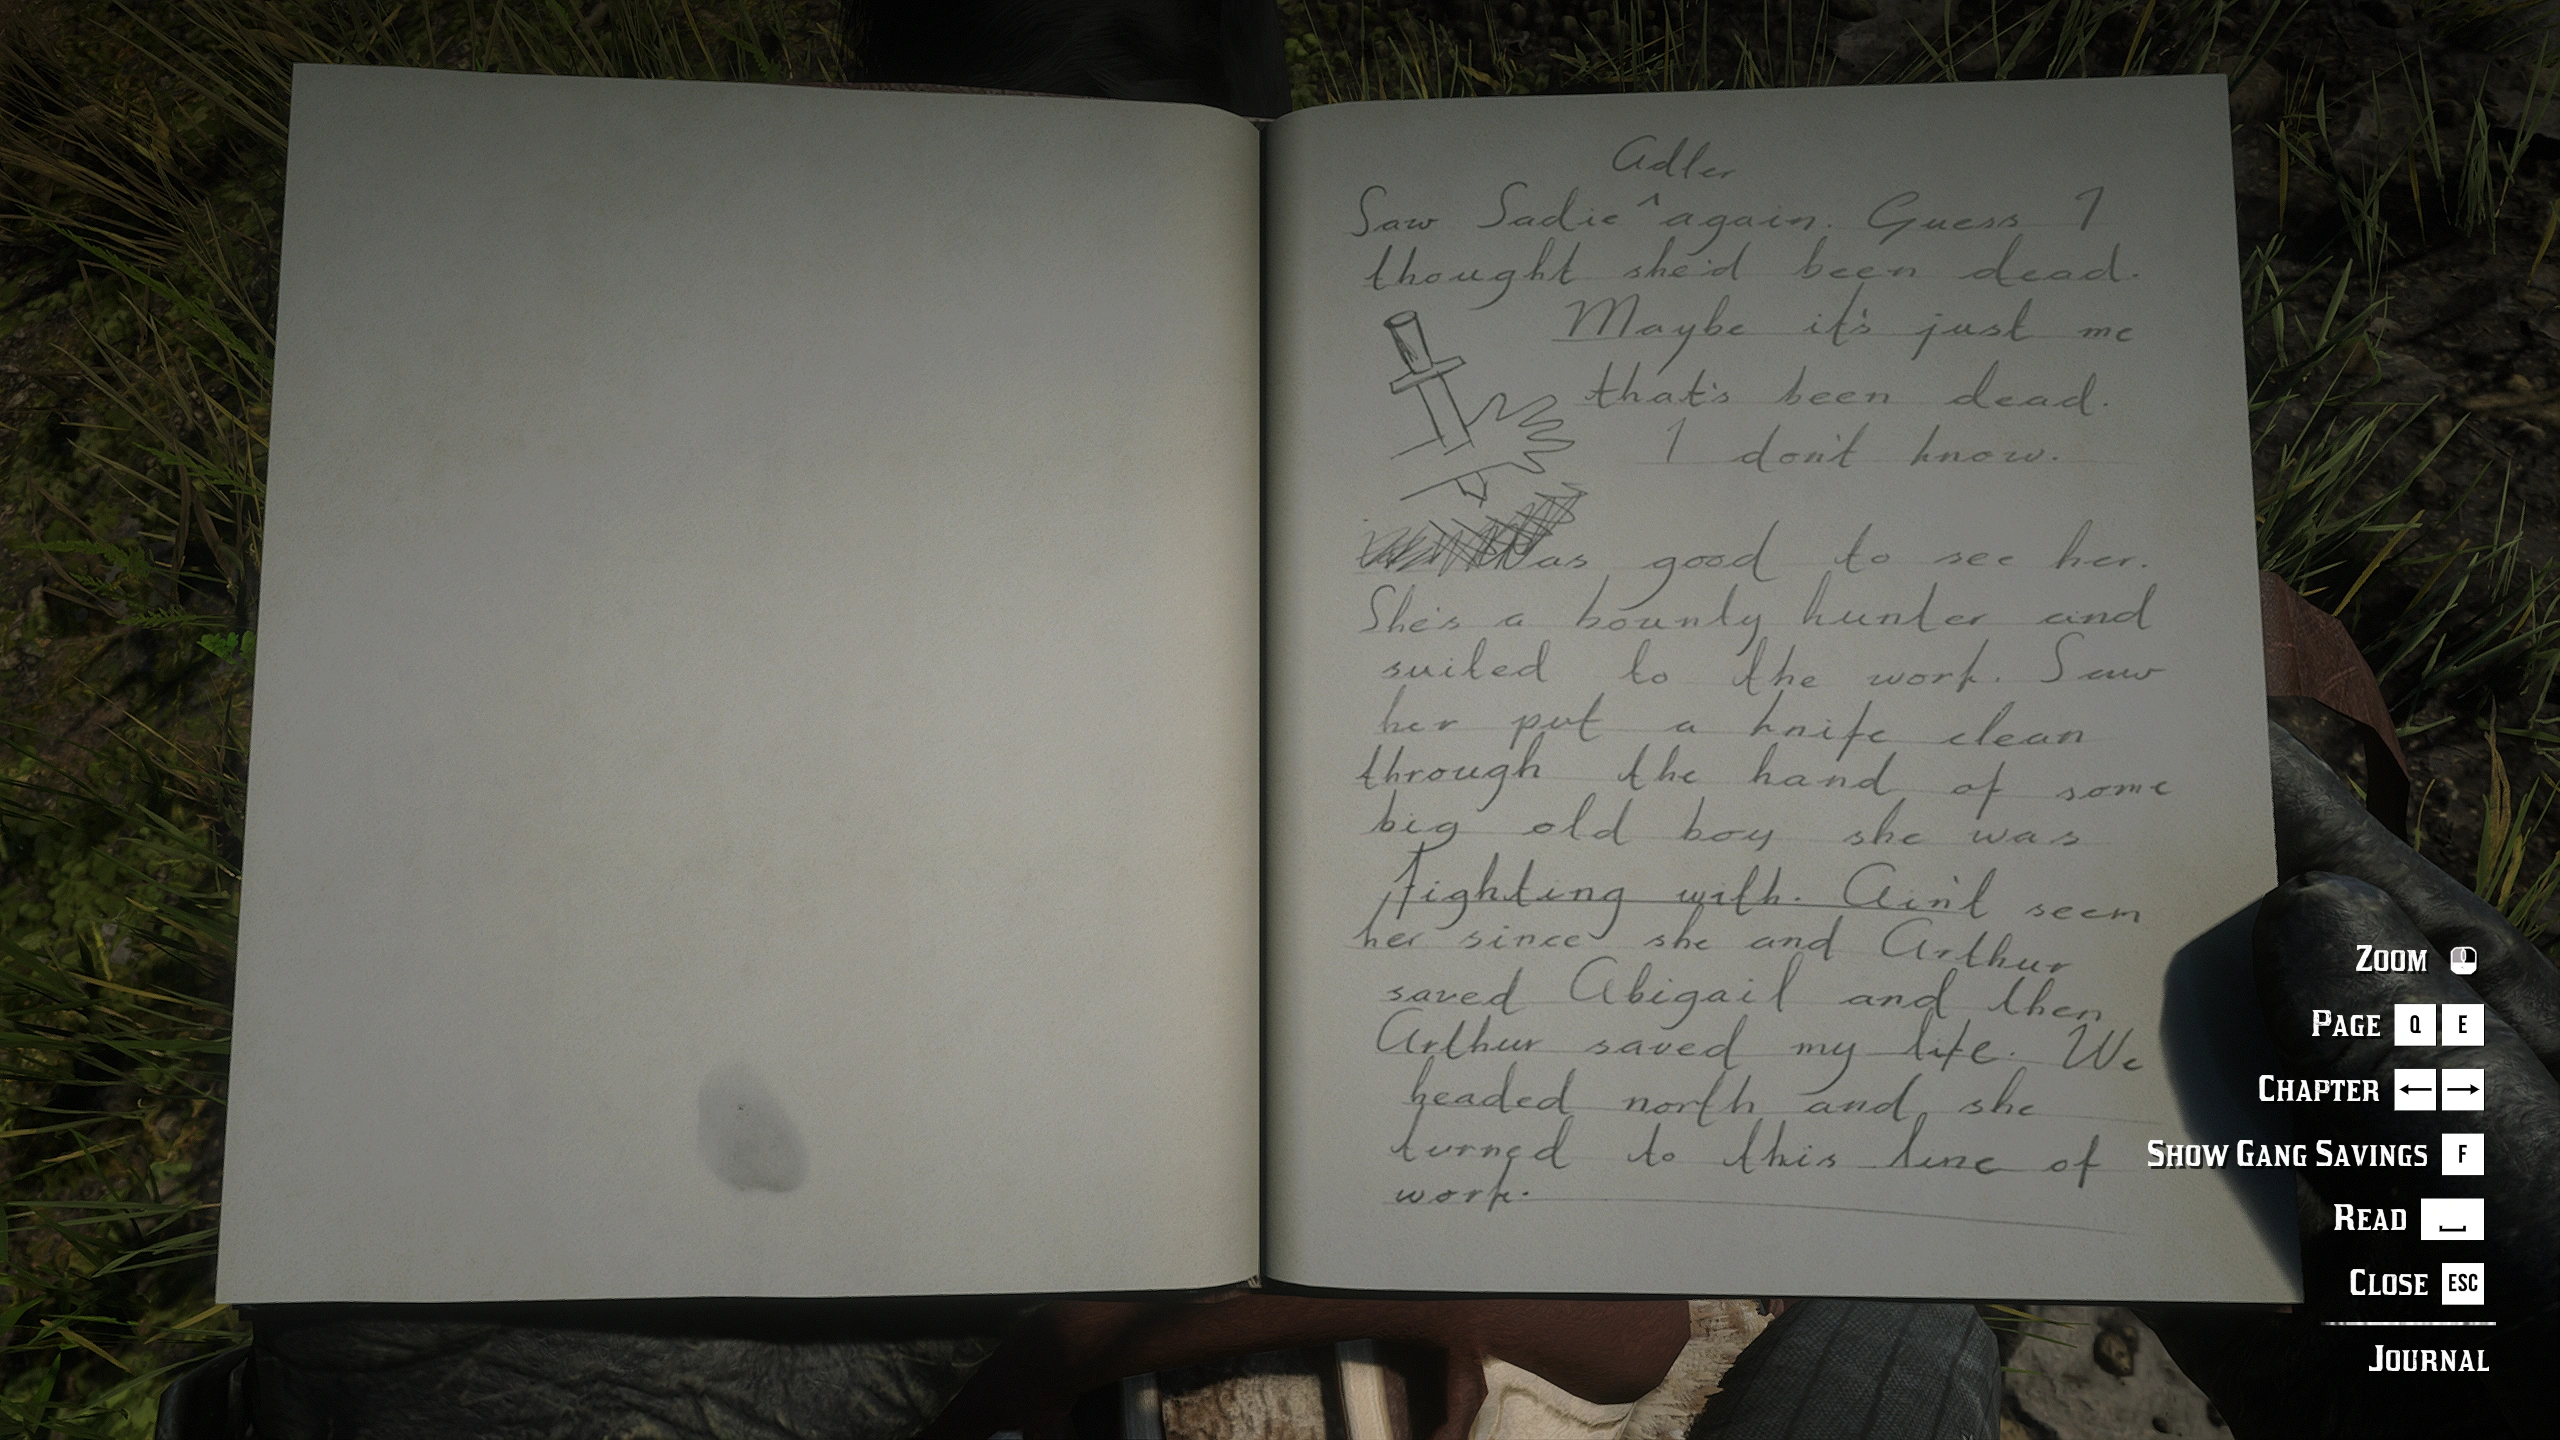 Adler
Saw Sadie ^ again. Guess I
thought she'd been dead.
Maybe it's just me
that's been dead.
I don't know.
Was good to see her.
She's a bounty hunter and
suited to the work. Saw
her put a knife clean
through the hand of some
big old boy she was
fighting with. Ain't seem
her since she and Arthur
saved Abigail and then
Arthur saved my life. We
headed north and she
turned to this line of
work.
ZOOM
PAGE Q E
CHAPTER ← →
SHOW GANG SAVINGS F
READ
CLOSE ESC
JOURNAL